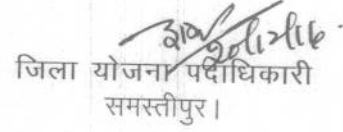 20/12/16
जिला योजना पदाधिकारी
समस्तीपुर।